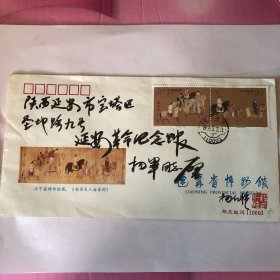 陕西延安市宝塔区
圣地路九号
延安革命纪念馆
杨军 同志 启
辽宁省博物馆藏:《虢国夫人游春图》
辽宁省博物馆
LIAONING PROVINCIAL MUSEUM
邮政编码:110003